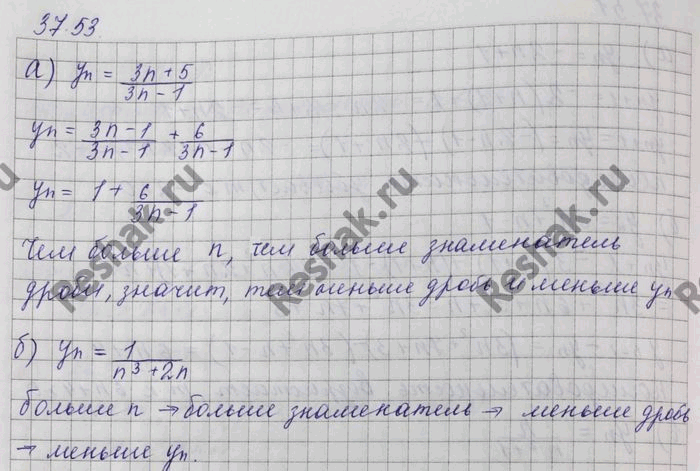 37.53.
а) yn = 3n + 5 / 3n - 1
yn = 3n - 1 / 3n - 1 + 6 / 3n - 1
yn = 1 + 6 / 3n - 1
Чем больше n, чем больше знаменатель
дроби, значит, тем меньше дробь и меньше yn
б) yn = 1 / n³ + 2n
больше n → больше знаменатель → меньше дробь
→ меньше yn.
Reshak.ru
Reshak.ru
Reshak.ru